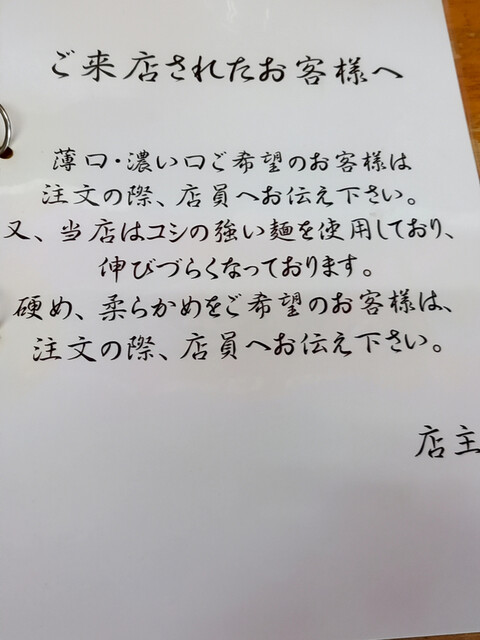 ご来店されたお客様へ
薄口・濃い口ご希望のお客様は
注文の際、店員へお伝え下さい。
又、当店はコシの強い麺を使用しており、
伸びづらくなっております。
硬め、柔らかめをご希望のお客様は、
注文の際、店員へお伝え下さい。
店主